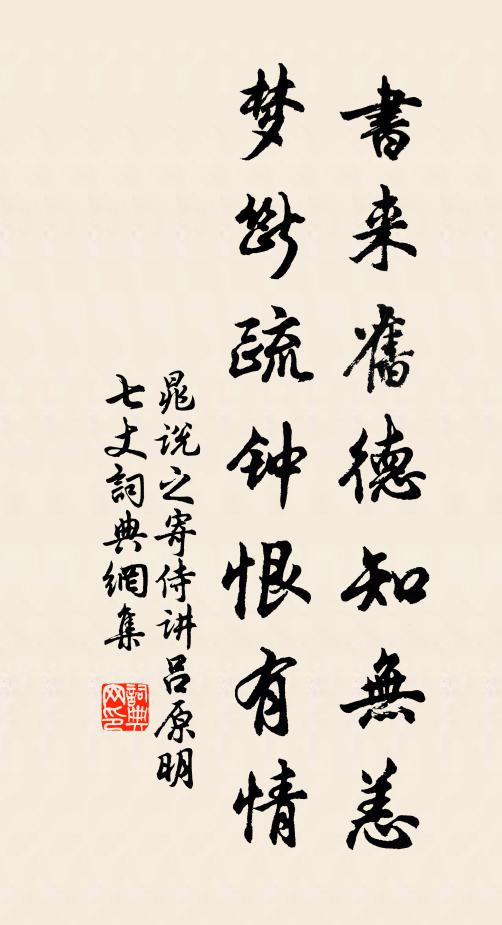 書来舊德知無恙
梦斷疏钟恨有情
晁说之寄侍讲吕原明
七丈詞典網集
詞典网印